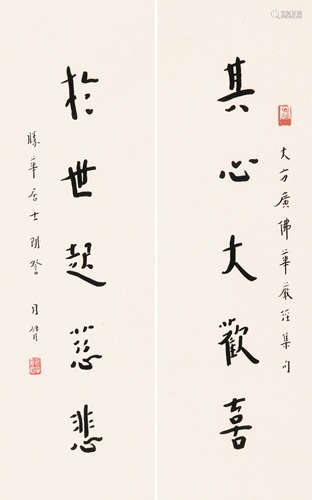 大方廣佛華嚴經集句
其心大歡喜
於世起慈悲
勝華居士明鑒